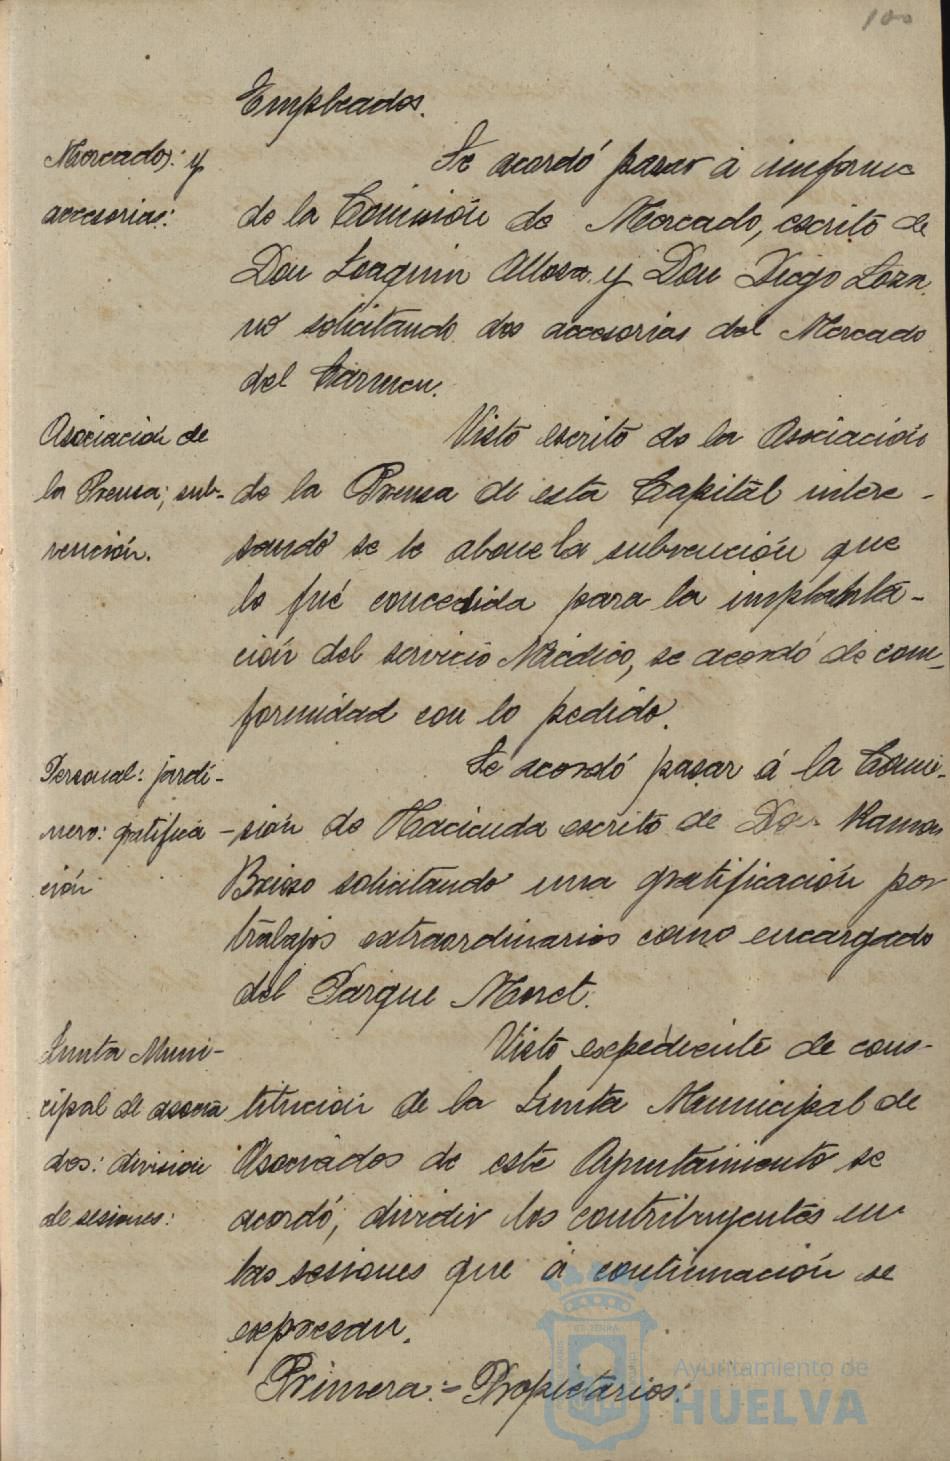 100
Empleados.
Mercados: y
accesorias:
Se acordó pasar á informe
de la Comisión de Mercado, escrito de
Don Joaquin Allosa y Don Diego Loza
no solicitando dos accesorias del Mercado
del Carmen.
Asociación de
la Prensa; sub-
vención.
Visto escrito de la Asociación
de la Prensa de esta Capital intere-
sando se le abone la subvención que
le fué concedida para la implanta-
ción del servicio Médico, se acordó de con-
formidad con lo pedido.
Personal: jardi-
nero: gratifica
ción
Se acordó pasar á la Comi-
sión de Hacienda escrito de Don Ramon
solicitando una gratificación por
trabajos extraordinarios como encargado
del Parque Moret.
Junta Muni-
cipal de asocia
dos: division
de sesiones:
Visto expediente de cons-
titución de la Junta Municipal de
Asociados de este Ayuntamiento se
acordó, dividir los contribuyentes en
las sesiones que á continuación se
expresan.
Primera:=Propietarios:
Ayuntamiento de
HUELVA